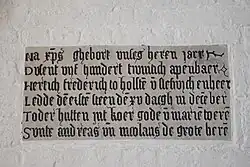 Na xp̄s ghebort vnses heren jarē
Dusent vyf hundert twintich apenbaer
Hertich frederich to holsten v̄ slesvich en heer
Ledde den ersten steen dē xv dagh in decēber
To der hutten mit koer gode v̄ marie to ere
Sunte andreas v̄n nicolaus de grote here